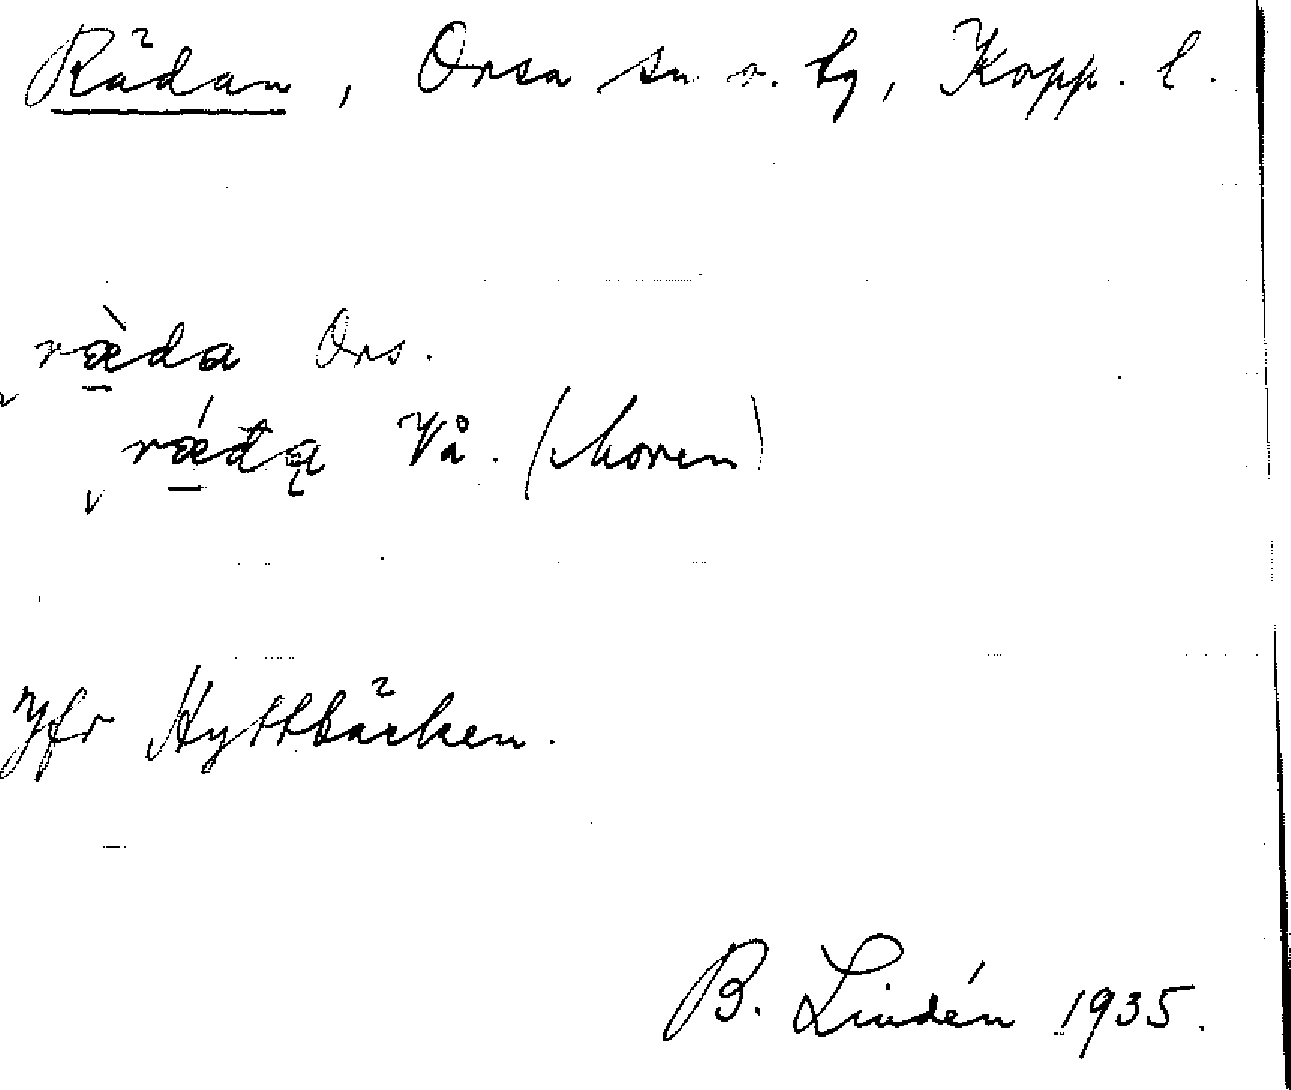 Rädan, Orsa sn o. by, Kopp. l.
ræ̀da Ors.
rǽđą Vå. (koren)
Jfr Hyttbäcken.
B. Lindén 1935.